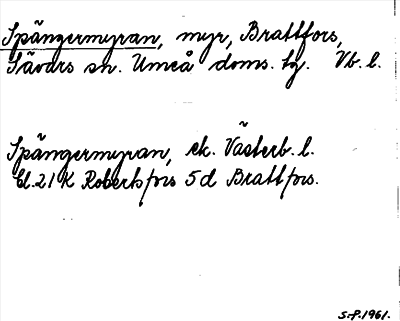 Spängermyran, myr, Brattfors,
Sävars sn. Umeå doms. tg. Vb. l.
Spängermyran, ek. Västerb. l.
Bl. 21 K Robertsfors 5d Brattfors.
S.P. 1961.